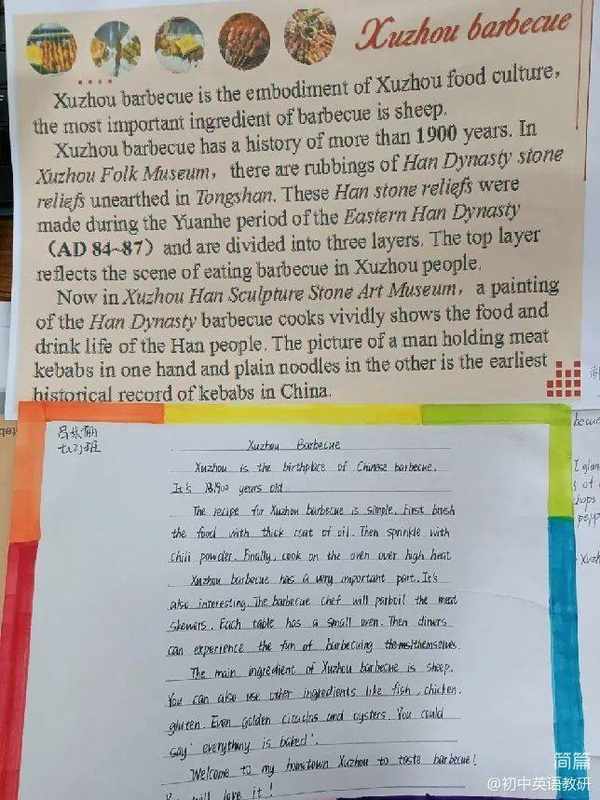 Xuzhou barbecue
Xuzhou barbecue is the embodiment of Xuzhou food culture,
the most important ingredient of barbecue is sheep.
Xuzhou barbecue has a history of more than 1900 years. In
Xuzhou Folk Museum, there are rubbings of Han Dynasty stone
reliefs unearthed in Tongshan. These Han stone reliefs were
made during the Yuanhe period of the Eastern Han Dynasty
（AD 84~87）and are divided into three layers. The top layer
reflects the scene of eating barbecue in Xuzhou people.
Now in Xuzhou Han Sculpture Stone Art Museum, a painting
of the Han Dynasty barbecue cooks vividly shows the food and
drink life of the Han people. The picture of a man holding meat
kebabs in one hand and plain noodles in the other is the earliest
historical record of kebabs in China.
Xuzhou Barbecue
Xuzhou is the birthplace of Chinese barbecue.
It's 1900 years old
The recipe for Xuzhou barbecue is simple. First brush
the food with thick coat of oil. Then sprinkle with
chili powder. Finally, cook on the oven over high heat
Xuzhou barbecue has a very important part. It's
also interesting. The barbecue chef will parboil the meat
skewers. Each table has a small oven. Then diners
can experience the fun of barbecuing themselves
The main ingredient of Xuzhou barbecue is sheep.
You can also use other ingredients like fish, chicken.
gluten. Even golden cicadas and oysters. You could
say 'everything is baked'.
Welcome to my hometown Xuzhou to taste barbecue!
You will love it!
简篇
@初中英语教研